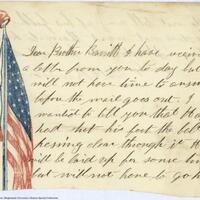 Dear Brother Everett I have receiv
a letter from you to day but
will not have time to answ
before the mail goes out. I
wanted to tell you that
had shot his foot the ball
passing clear through it. H
will be laid up for some tim
but will not have to go h